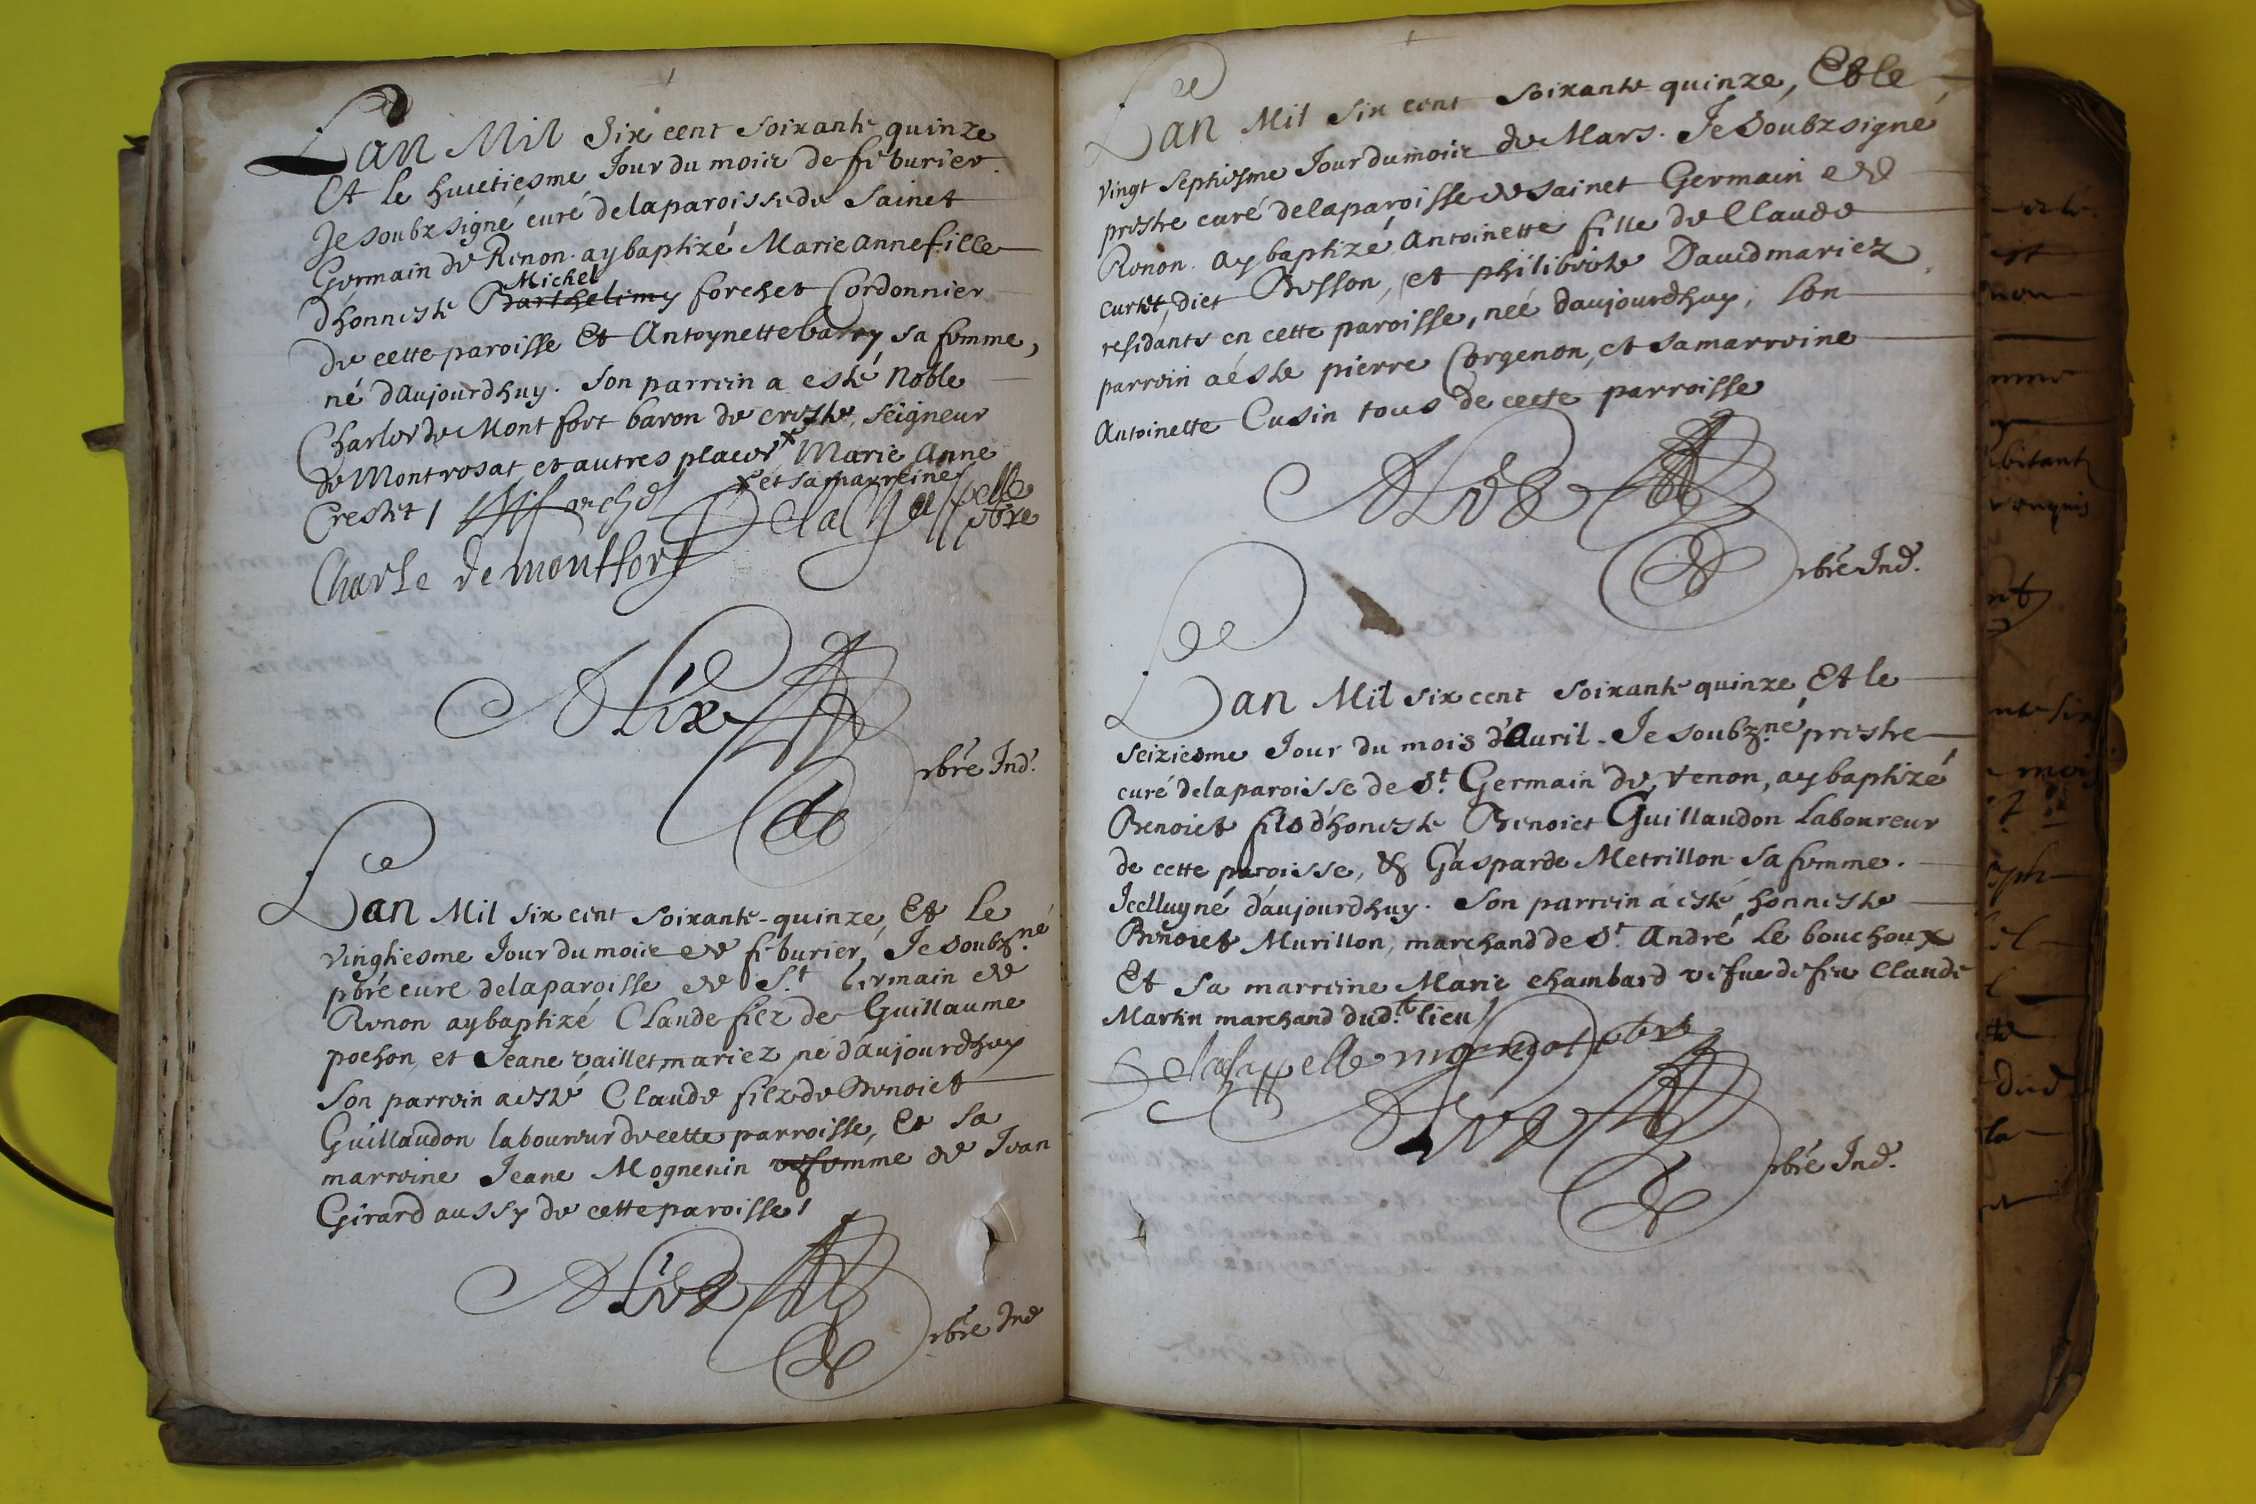 Lan Mil Six cent soixante quinze
Et le huictiesme Jour du moiis de feburier
Je soubzsigné curé de la paroisse de Sainct
Germain de Renon ay baptizé Marie Anne fille
Michel
d'honneste Barthelimy forchet Cordonnier
de cette paroisse Et Antoynette barry sa femme,
né d'Aujourdhuy. Son parrein a esté Noble
Charles de Montfort baron de creste, seigneur
de Montrosat et autres places x Marie Anne
x et sa marreine
Crestet / forchet Delachapelle ptre
Charle de montfort
Alix
pbre Ind.
Lan Mil six cent soixante-quinze, Et le
vingtiesme Jour du moiis de feburier, Je soubzné
pbre curé de la paroisse de St. Germain de
Renon ay baptizé Claude filz de Guillaume
pochon, et Jeane vaillet mariez né d'aujourdhuy
Son parrein a esté Claude filz de Benoict
Guillaudon laboureur de cette parroisse, Et sa
marreine Jeane Mognenin vefemme de Jean
Girard aussy de cette paroisse /
Alix
pbre Ind
Lan Mil six cent soixante quinze, Et le
vingt septiesme Jour du moiis de Mars. Je soubzsigné
prestre curé de la paroisse de sainct Germain de
Renon. ay baptizé Antoinette fille de Claude
curtet, dict Besson, et philiberte Dauid mariez
residants en cette paroisse, neé d'aujourdhuy, son
parrein a esté pierre Corgenon, et sa marreine
Antoinette Cusin tous de cette parroisse
Alix
pbre Ind.
Lan Mil six cent soixante quinze Et le
seiziesme Jour du mois d'Auril. Je soubzné prestre
curé de la paroisse de St. Germain de renon, ay baptizé
Benoict fils d'honeste Benoict Guillaudon Laboureur
de cette paroisse, & Gasparde Metrillon sa femme.
Icelluy né d'aujourdhuy. Son parrein a esté, honneste
Benoict Murillon, marchand de St. André Le bouchoux
Et sa marreine Marie chambard vefue de feu Claude
Martin marchand dudt. lieu /
Delachappelle ptre
Alix
pbre Ind.